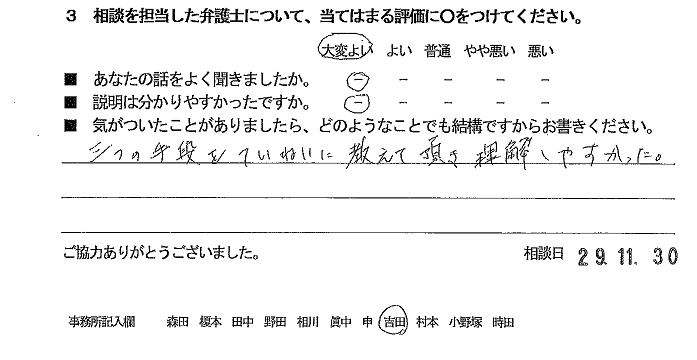 3 相談を担当した弁護士について、当てはまる評価に〇をつけてください。
大変よい よい 普通 やや悪い 悪い
■ あなたの話をよく聞きましたか。 － － － － －
■ 説明は分かりやすかったですか。 － － － － －
■ 気がついたことがありましたら、どのようなことでも結構ですからお書きください。
三つの手段をていねいに教えて頂き理解しやすかった。
ご協力ありがとうございました。 相談日 29.11.30
事務所記入欄 森田 榎本 田中 野田 相川 眞中 申 吉田 村本 小野塚 時田